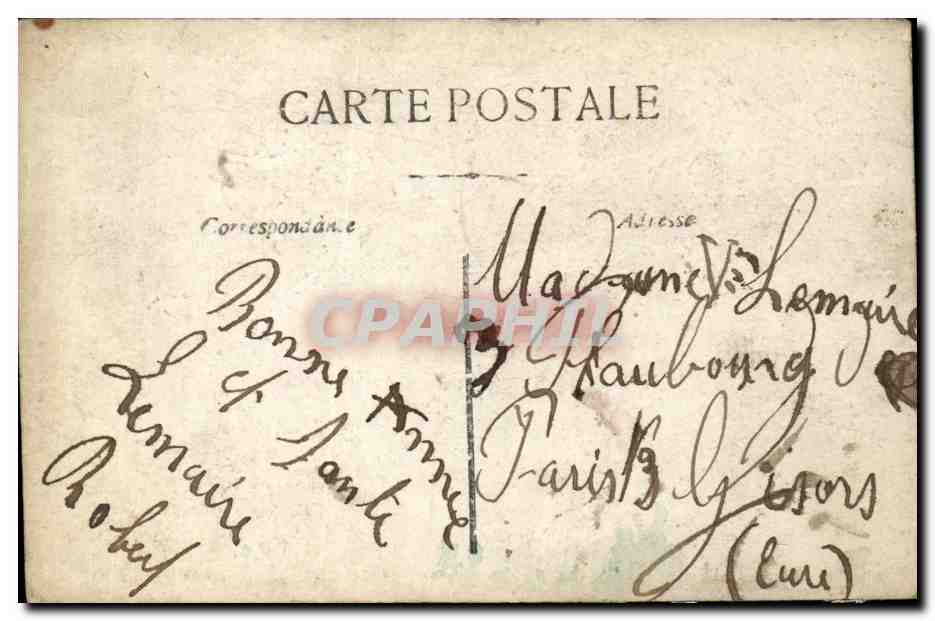 CARTE POSTALE
Correspondance
Bonne Annee
et Santé
Lemaire
Robert
Adresse
Madame Vve Lemaire
Faubourg
Paris Gisors
(Eure)
CPAPHIL